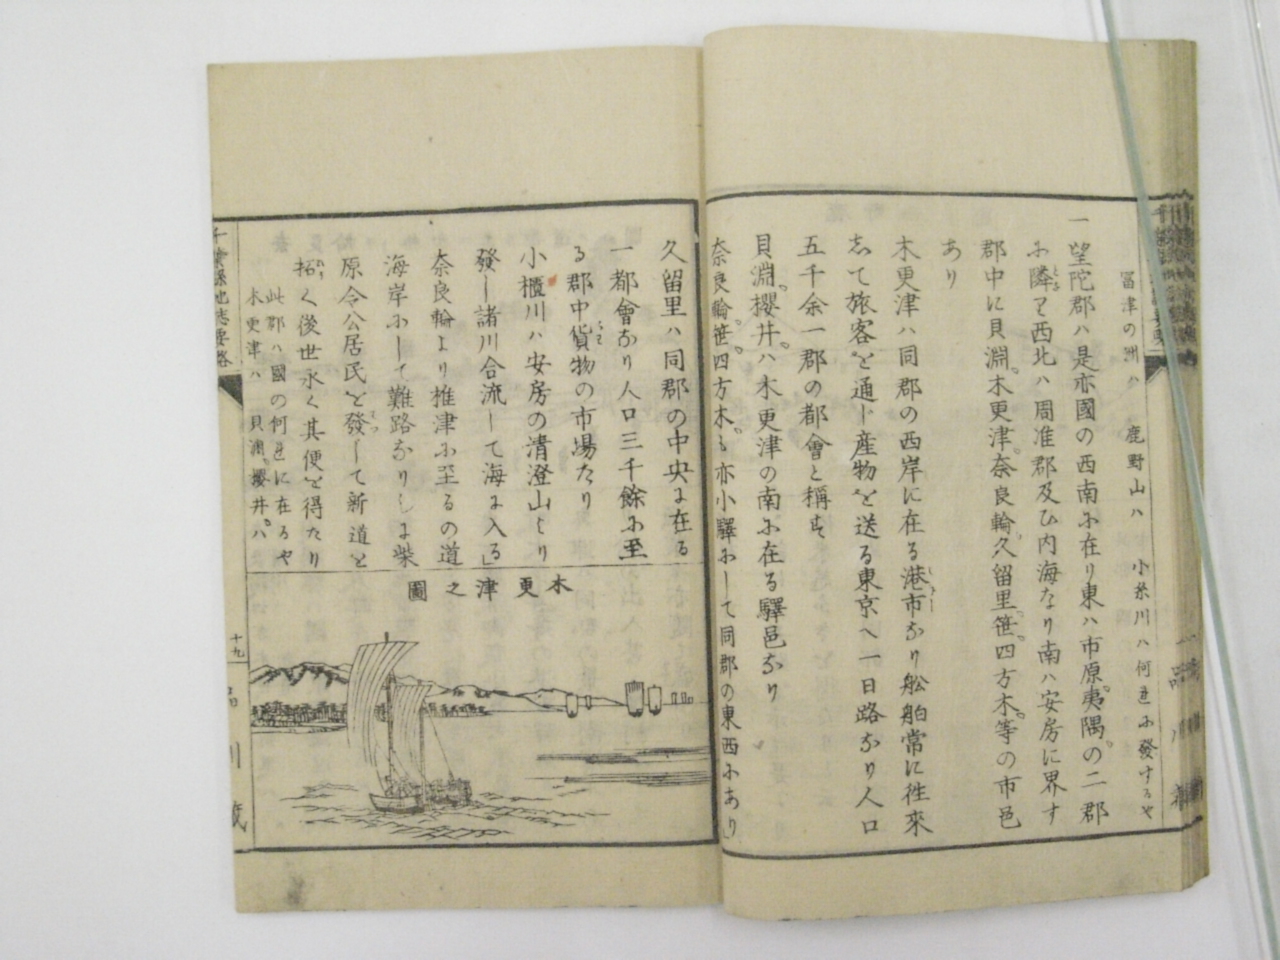 冨津の洲ハ 鹿野山ハ 小糸川ハ何れに發するや
一 望陀郡ハ是亦國の西南に在り東ハ市原夷隅の二郡
に隣り西北ハ周准郡及ひ内海なり南ハ安房に界す
郡中に貝淵木更津奈良輪久留里笹四方木等の市邑
あり
木更津ハ同郡の西岸に在る港市なり舩舶常に徃來
して旅客を通じ産物を送る東京へ一日路なり人口
五千余一郡の都會と稱す
貝淵櫻井ハ木更津の南に在る驛邑なり
奈良輪笹四方木も亦小驛にして同郡の東西にあり
久留里ハ同郡の中央に在る
一都會なり人口三千餘に至
る郡中貨物の市場たり
小櫃川ハ安房の清澄山より
發し諸川合流して海に入る
奈良輪より推津に至るの道
海岸にして難路なりしに柴
原令公居民を發して新道を
拓く後世永く其便を得たり
此郡ハ國の何れに在るや
木更津ハ 貝淵櫻井ハ
木更津之圖
千葉縣地誌要略
十九